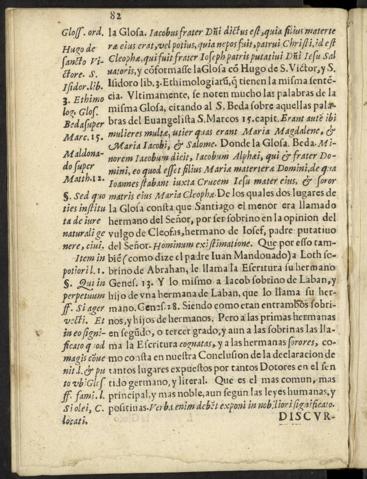 82
Gloss. ord.
Hugo de
sancto Vi-
ctore. S.
Isidor. lib.
3. Ethimo
log. Glos.
Beda super
Marc. 15.
Maldona-
do super
Matth. 12.
§. Sed quo
ties institu
ta de iure
naturali ge
nere, ciui.
Item in
potiori l. 1.
§. Qui in
perpetuum
ff. Si ager
vecti. Et
in eo signi-
ficato quod
magis coue
nit l. & pu
to vbi Glos
ff. fami. l.
Si olei, C.
locati.
la Glosa. Iacobus frater Dñi dictus est, quia filius materte
ræ eius erat, vel potius, quia nepos fuit, patrui Christi, id est
Cleopha, qui fuit frater Ioseph patris putatiui Dñi Iesu Sal
uatoris, y cõformasse la Glosa cõ Hugo de S. Victor, y S.
Isidoro lib. 3. Ethimologiarũ, q̃ tienen la misma senté-
cia. Vltimamente, se noten mucho las palabras de la
misma Glosa, citando al S. Beda sobre aquellas pala-
bras del Euangelista S. Marcos 15. capit. Erant autē ibi
mulieres multæ, inter quas erant Maria Magdalene, &
Maria Iacobi, & Salome. Donde la Glosa. Beda. Mi-
norem Iacobum dicit, Iacobum Alphæi, qui & frater Do-
mini, eo quod esset filius Mariæ materteræ Domini, de qua
Ioannes stabant iuxta Crucem Iesu mater eius, & soror
matris eius Maria Cleophæ. De los quales dos lugares de
la Glosa consta que Santiago el menor era llamado
hermano del Señor, por ser sobrino en la opinion del
vulgo de Cleofas, hermano de Iosef, padre putatiuo
del Señor. Hominum existimatione. Que por esso tam-
biē (como dize el padre Iuan Mandonado) a Loth so-
brino de Abrahan, le llama la Escritura su hermano
Genes. 13. Y lo mismo a Iacob sobrino de Laban, y
hijo de vna hermana de Laban, que lo llama su her-
mano. Genes. 28. Siendo como eran entrambos sobri-
nos, y hijos de hermanos. Pero a las primas hermanas
en segũdo, o tercer grado, y aun a las sobrinas las lla-
ma la Escritura cognatas, y a las hermanas sorores, co-
mo consta en nuestra Conclusion de la declaracion de
tantos lugares expuestos por tantos Dotores en el sen
tido germano, y literal. Que es el mas comun, mas
principal, y mas noble, aun segun las leyes humanas, y
positiuas. Verba enim debēt exponi in nobiliori significato.
DISCVR-